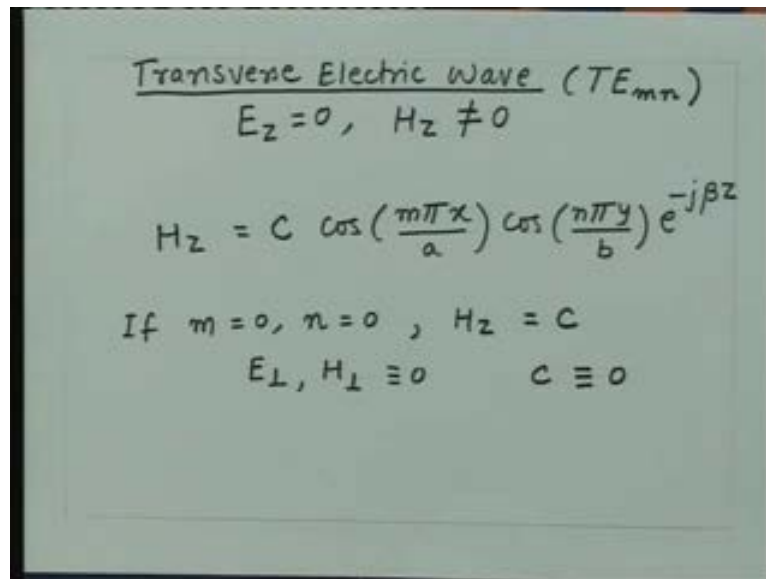 Transverse Electric Wave (TEmn)
Ez = 0, Hz ≠ 0
Hz = C cos(mπx/a) cos(nπy/b) e^-jβz
If m = 0, n = 0, Hz = C
E⊥, H⊥ ≡ 0 C ≡ 0